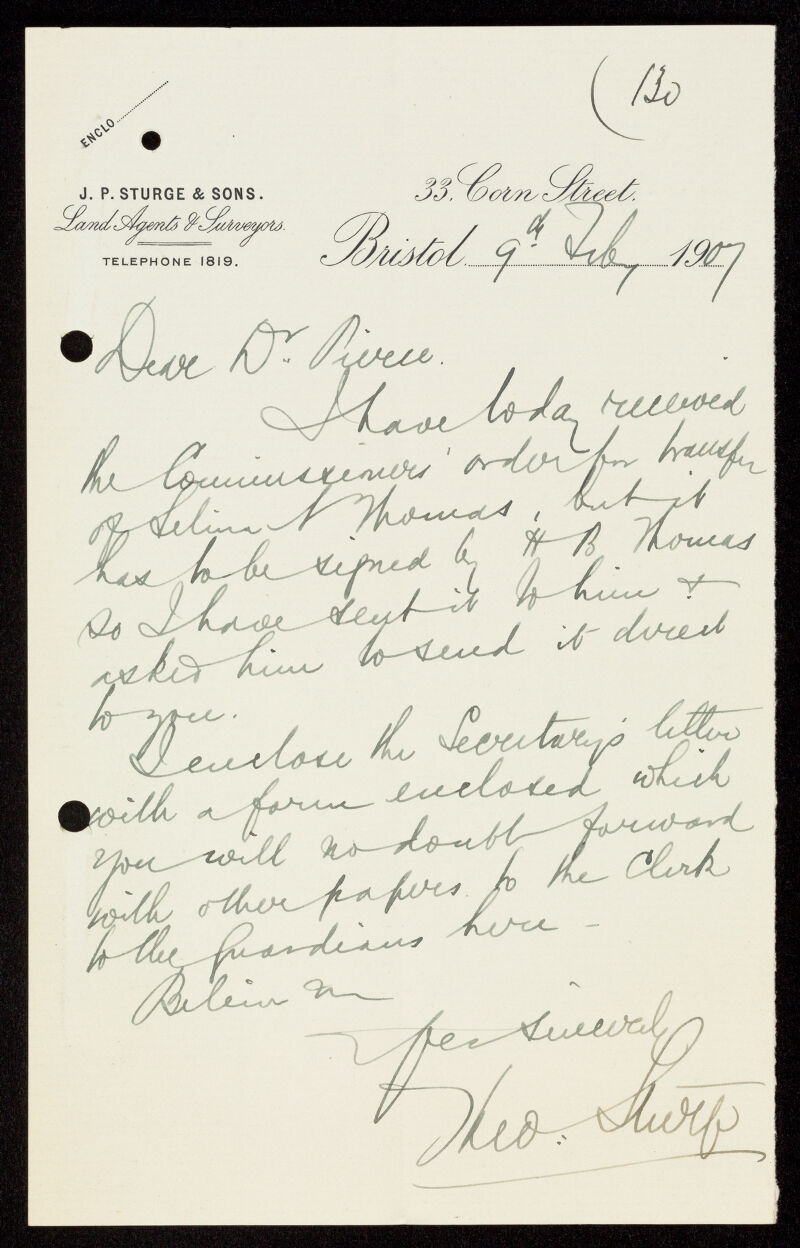 (130
ENCLO
J. P. STURGE & SONS.
Land Agents & Surveyors.
TELEPHONE 1819.
33, Corn Street.
Bristol 9th Feby 1907
Dear Dr. Pierce.
I have today received
the Commissioners' order for transfer
of Selina N Thomas, but it
has to be signed by H B Thomas
so I have sent it to him &
asked him to send it direct
to you.
I enclose the Secretary's letter
with a form enclosed which
you will no doubt forward
with other papers to the Clerk
to the Guardians here -
Believe me
yrs sincerely
Theo. Sturge